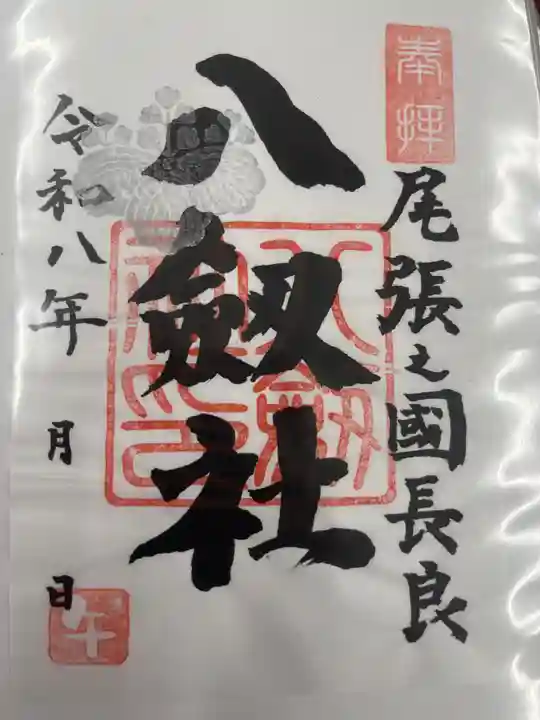 奉拝
尾張之國長良
八劔社
令和八年 月 日
午